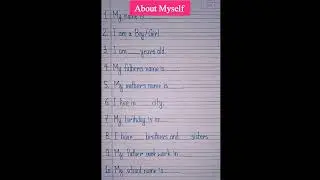 About Myself
1. My name is
2. I am a Boy/Girl.
3. I am ___ years old.
4. My father's name is
5. My mother's name is
6. I live in ___ city.
7. My birthday is on
8. I have ___ brothers and ___ sisters.
9. My father work in
10. My school name is